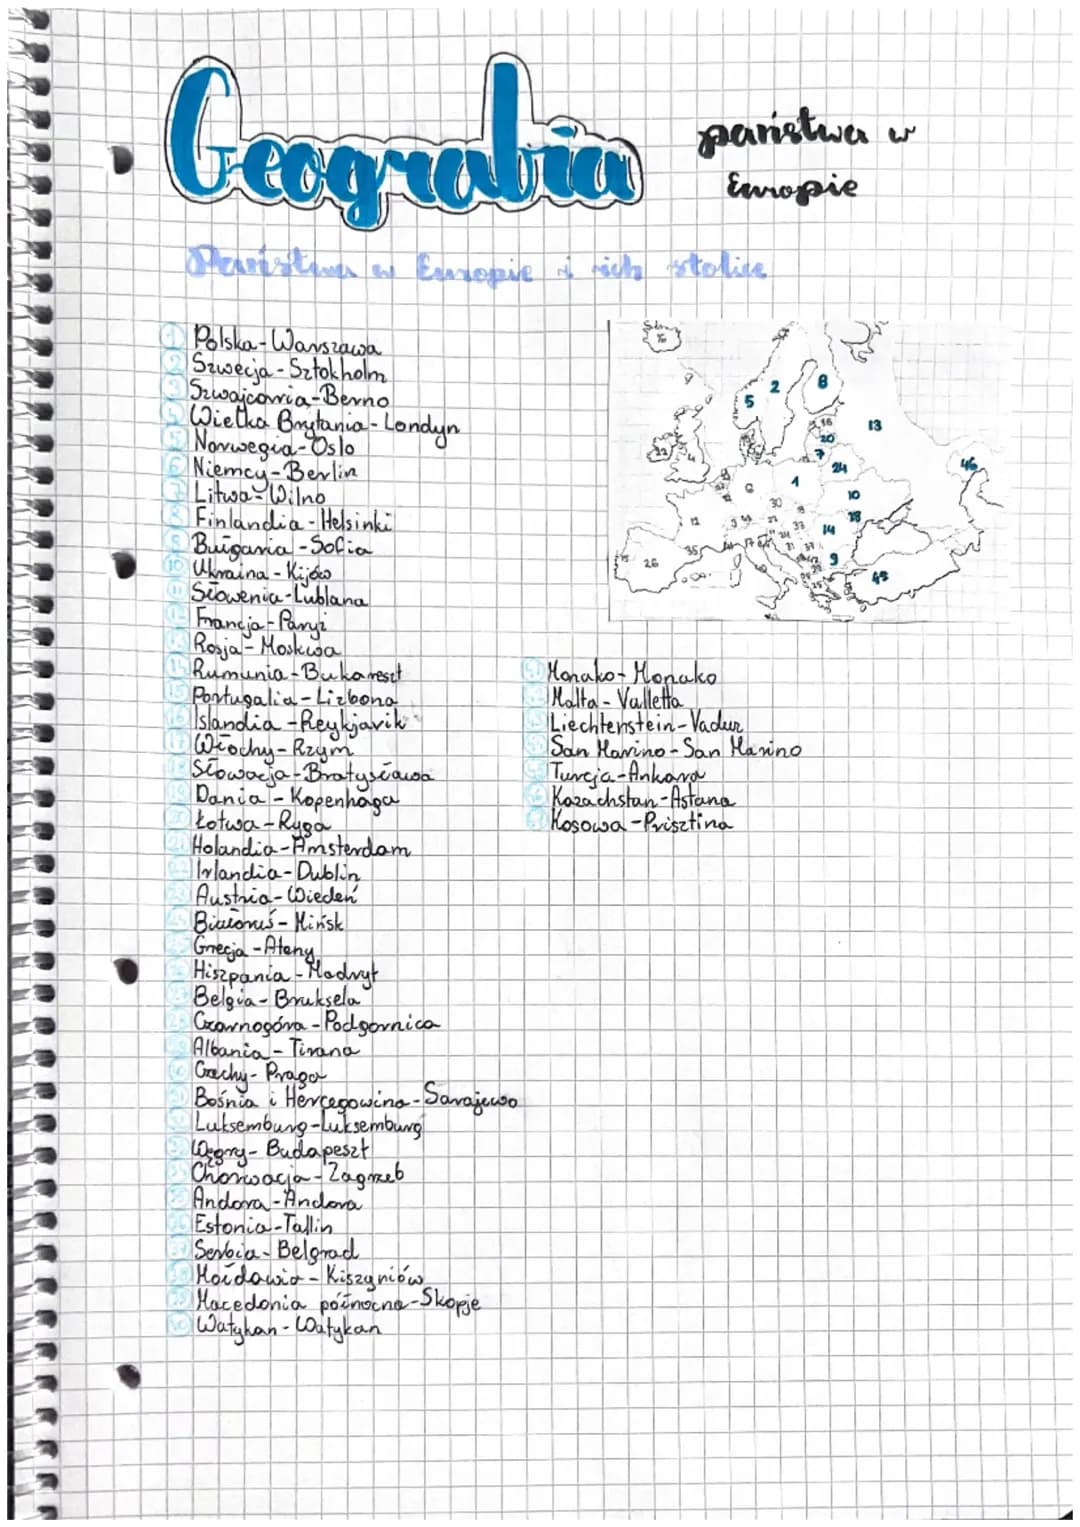 Geografia
państwa w
Europie
Państwa w Europie i ich stolice
1 Polska - Warszawa
2 Szwecja - Sztokholm
3 Szwajcaria - Berno
Wielka Brytania - Londyn
5 Norwegia - Oslo
6 Niemcy - Berlin
7 Litwa - Wilno
8 Finlandia - Helsinki
9 Bułgaria - Sofia
10 Ukraina - Kijów
11 Słowenia - Lublana
12 Francja - Paryż
13 Rosja - Moskwa
14 Rumunia - Bukareszt
15 Portugalia - Lizbona
16 Islandia - Reykjavik
17 Włochy - Rzym
18 Słowacja - Bratysława
19 Dania - Kopenhaga
20 Łotwa - Ryga
21 Holandia - Amsterdam
22 Irlandia - Dublin
23 Austria - Wiedeń
24 Białoruś - Mińsk
25 Grecja - Ateny
26 Hiszpania - Madryt
27 Belgia - Bruksela
28 Czarnogóra - Podgornica
29 Albania - Tirana
30 Czechy - Praga
31 Bośnia i Hercegowina - Sarajewo
32 Luksemburg - Luksemburg
33 Węgry - Budapeszt
34 Chorwacja - Zagrzeb
35 Andora - Andora
36 Estonia - Tallin
37 Serbia - Belgrad
38 Mołdawia - Kiszyniów
39 Macedonia północna - Skopje
40 Watykan - Watykan
41 Monako - Monako
42 Malta - Valletta
43 Liechtenstein - Vaduz
44 San Marino - San Marino
45 Turcja - Ankara
46 Kazachstan - Astana
47 Kosowa - Prisztina
16
2
8
5
13
20
7
22
4
24
46
6
1
10
12
30
14
26
35
9
45